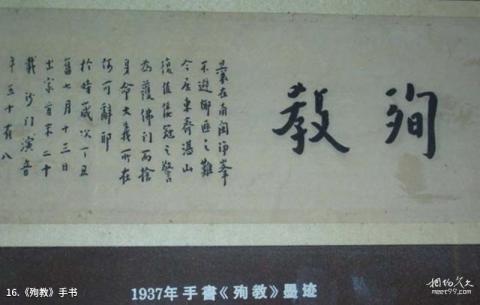 殉教
曩在南閩淨峯
不避鄉匪之難
今居東齊湛山
復值倭寇之警
為護佛門而捨
身命大義所在
何可辭耶
於時歲次丁丑
舊七月十三日
出家首末二十
載沙門演音
年五十有八
1937年手書《殉教》墨迹
16.《殉教》手书
相约久久
meet99.com